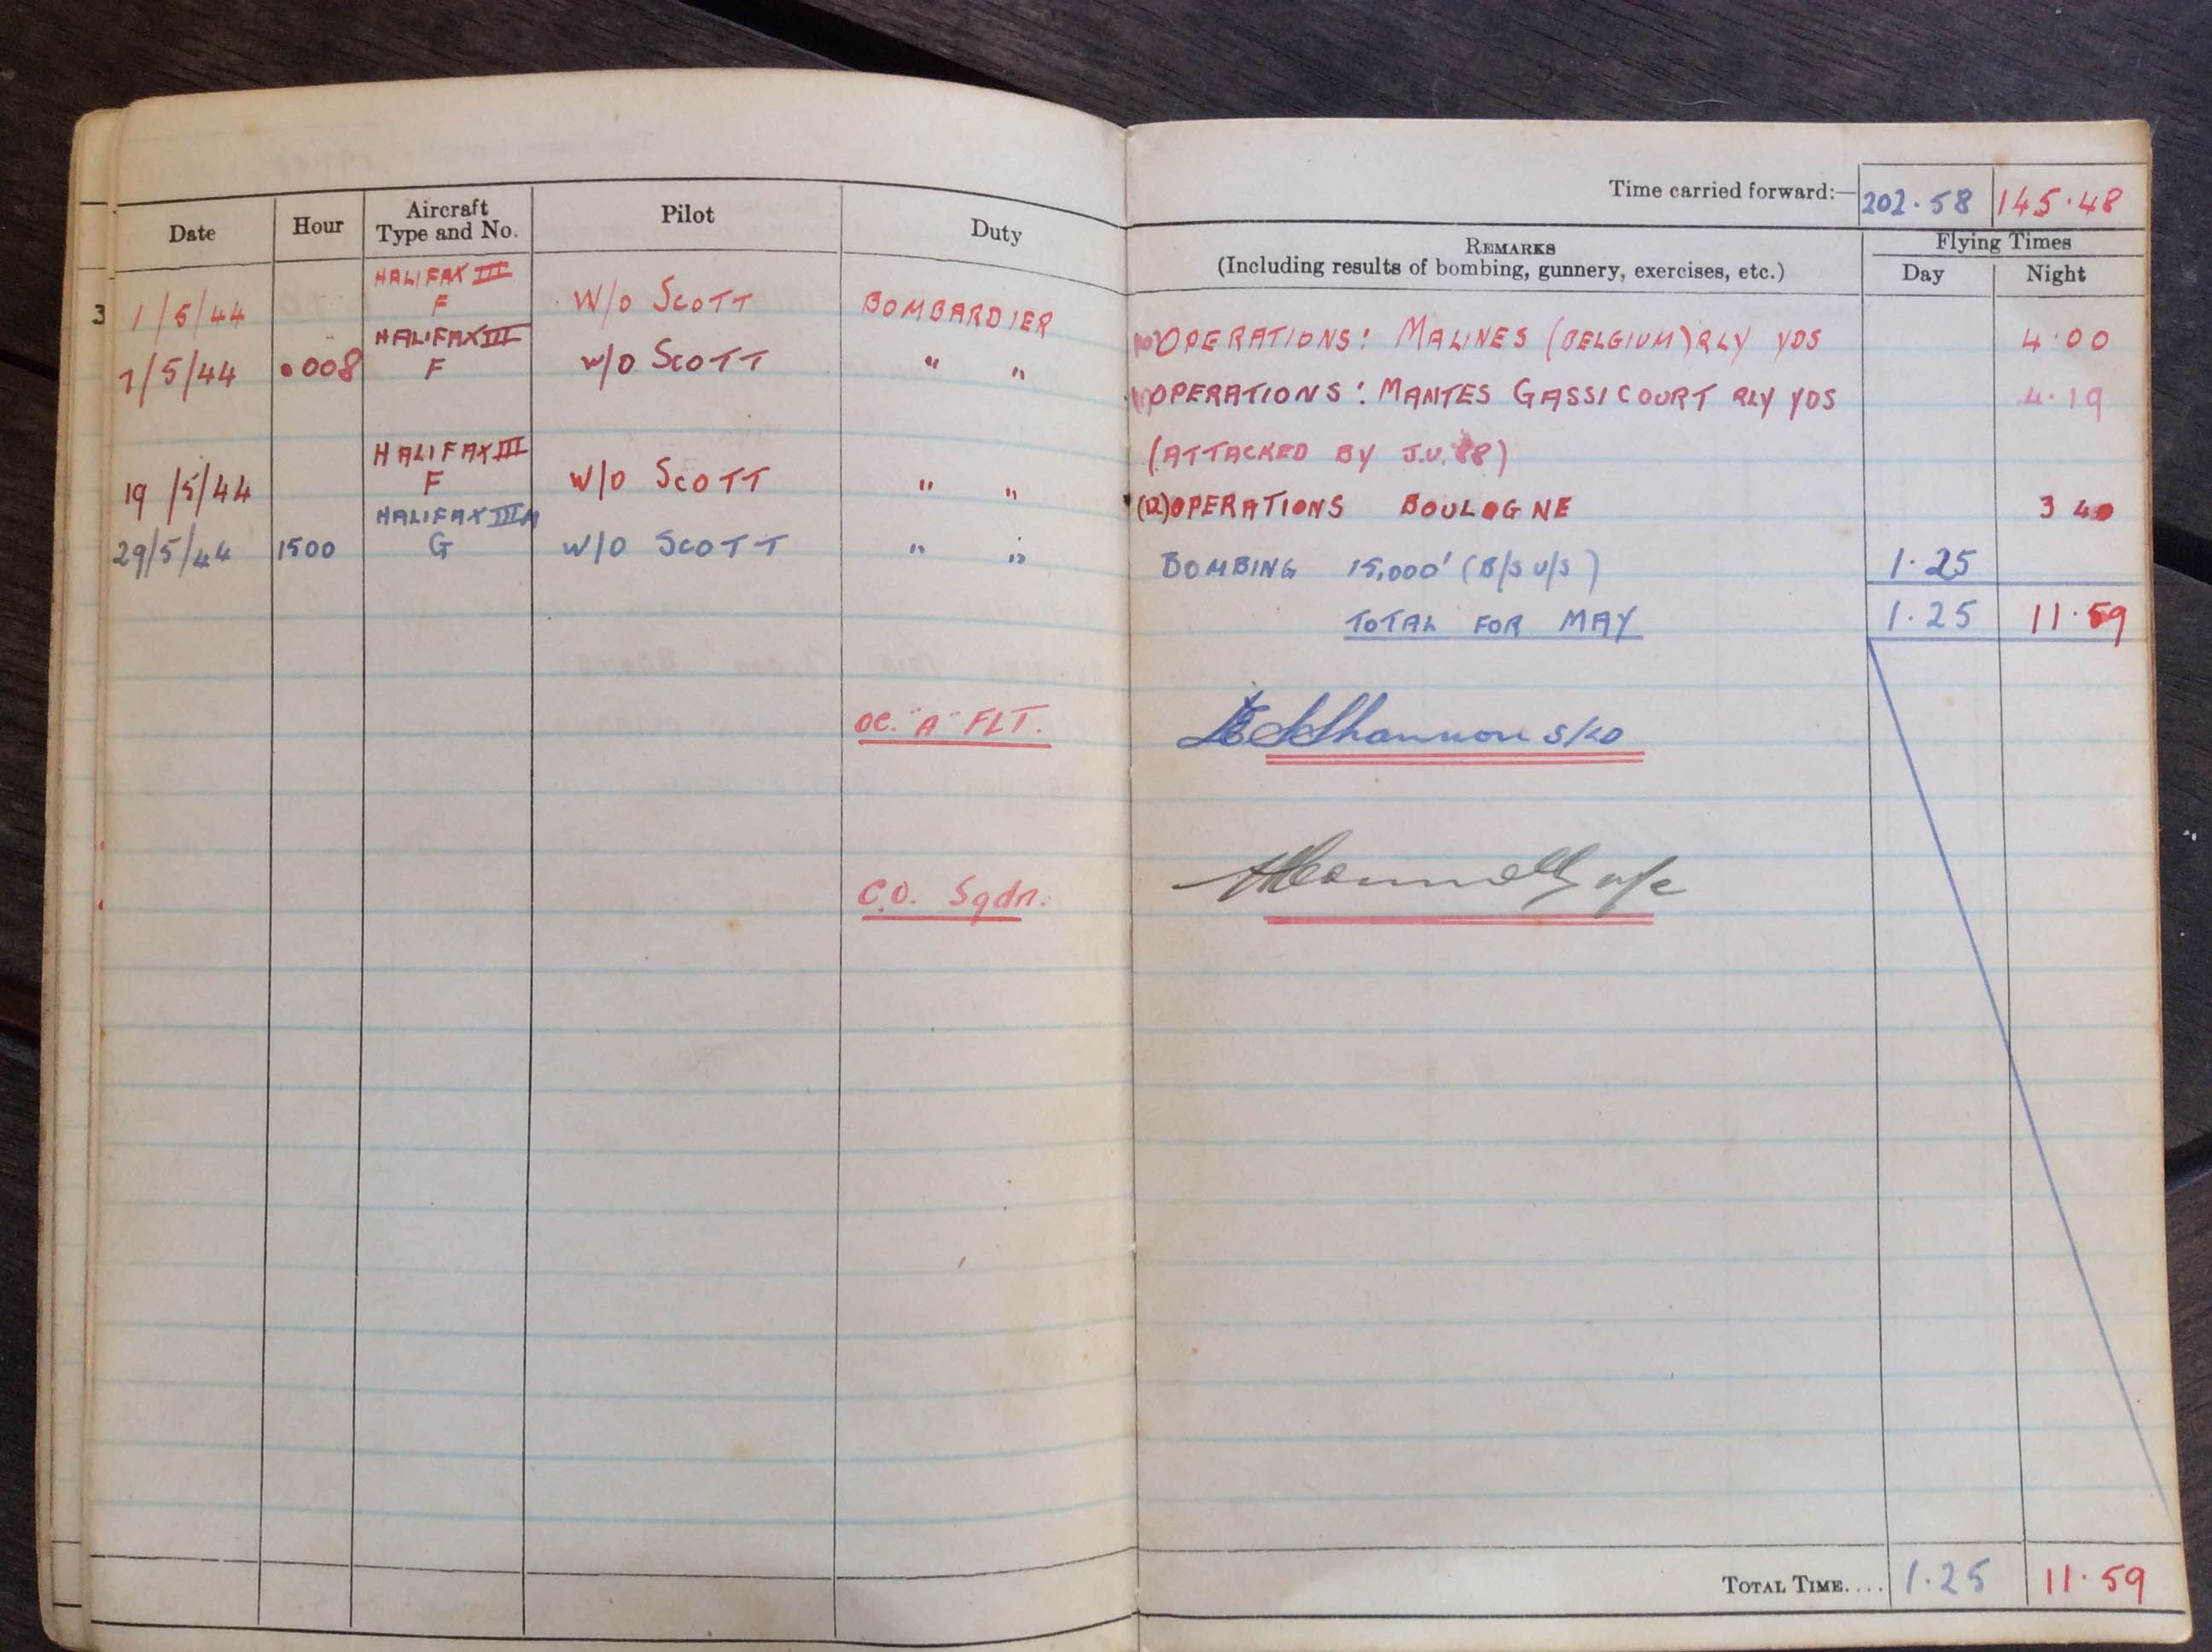 Time carried forward:— 202.58 145.48
Date Hour Aircraft Type and No. Pilot Duty REMARKS (Including results of bombing, gunnery, exercises, etc.) Flying Times Day Night
3
HALIFAX III
1/5/44 F W/O SCOTT BOMBARDIER (10) OPERATIONS: MALINES (BELGIUM) RLY YDS 4.00
HALIFAX III
7/5/44 0008 F W/O SCOTT " " (11) OPERATIONS: MANTES GASSICOURT RLY YDS 4.19
(ATTACKED BY J.U. 88)
HALIFAX III
19/5/44 F W/O SCOTT " " (12) OPERATIONS BOULOGNE 3 40
HALIFAX III A
29/5/44 1500 G W/O SCOTT " " BOMBING 15,000' (B/S U/S) 1.25
TOTAL FOR MAY 1.25 11.59
OC. "A" FLT. Shannon S/LD
C.O. Sqdn. Connolly W/C
TOTAL TIME.... 1.25 11.59